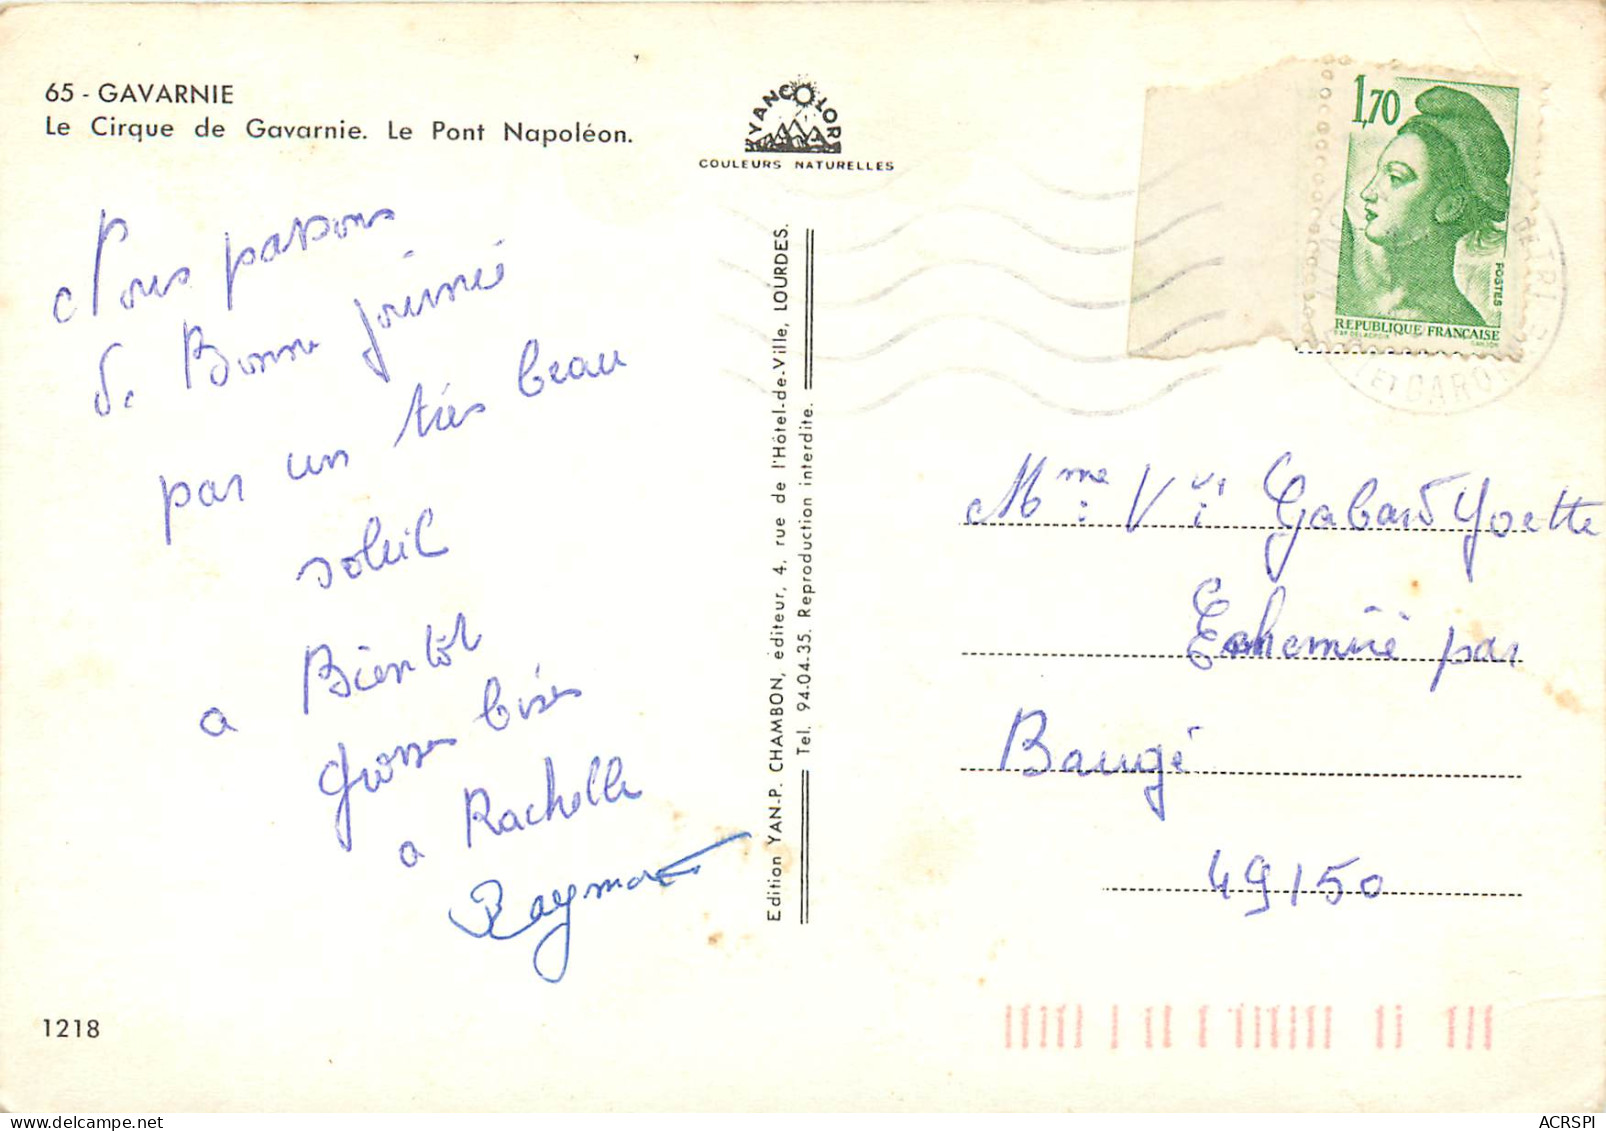 65 - GAVARNIE
Le Cirque de Gavarnie. Le Pont Napoléon.
YANCOLOR
COULEURS NATURELLES
1,70
POSTES
REPUBLIQUE FRANÇAISE
ET GARO
Nous passons
de Bonne journé
par un très beau
soleil
a Bientôt
Grosses bises
a Rachelle
Raymond
Edition YAN-P. CHAMBON, éditeur, 4, rue de l'Hôtel-de-Ville, LOURDES.
Tel. 94.04.35. Reproduction interdite.
Mme Vve Gabard Yvette
Echemiré par
Baugé
49150
1218
ACRSPI